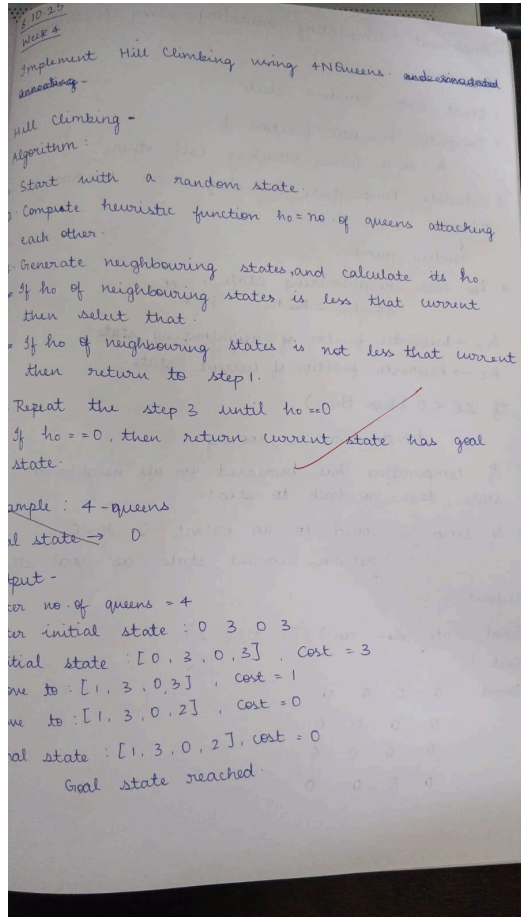 8-10-25
Week 4
Implement Hill Climbing using 4NQueens.
Hill Climbing -
Algorithm :
Start with a random state.
Compute heuristic function ho = no. of queens attacking
each other.
Generate neighbouring states, and calculate its ho.
If ho of neighbouring states is less that current
then select that.
If ho of neighbouring states is not less that current
then return to step 1.
Repeat the step 3 until ho == 0
If ho == 0, then return current state has goal
state.
ample : 4-queens
al state → 0
tput -
ter no. of queens = 4
ter initial state : 0 3 0 3
itial state : [0, 3, 0, 3], Cost = 3
ve to : [1, 3, 0, 3], Cost = 1
ve to : [1, 3, 0, 2], Cost = 0
nal state : [1, 3, 0, 2], cost = 0
Goal state reached.